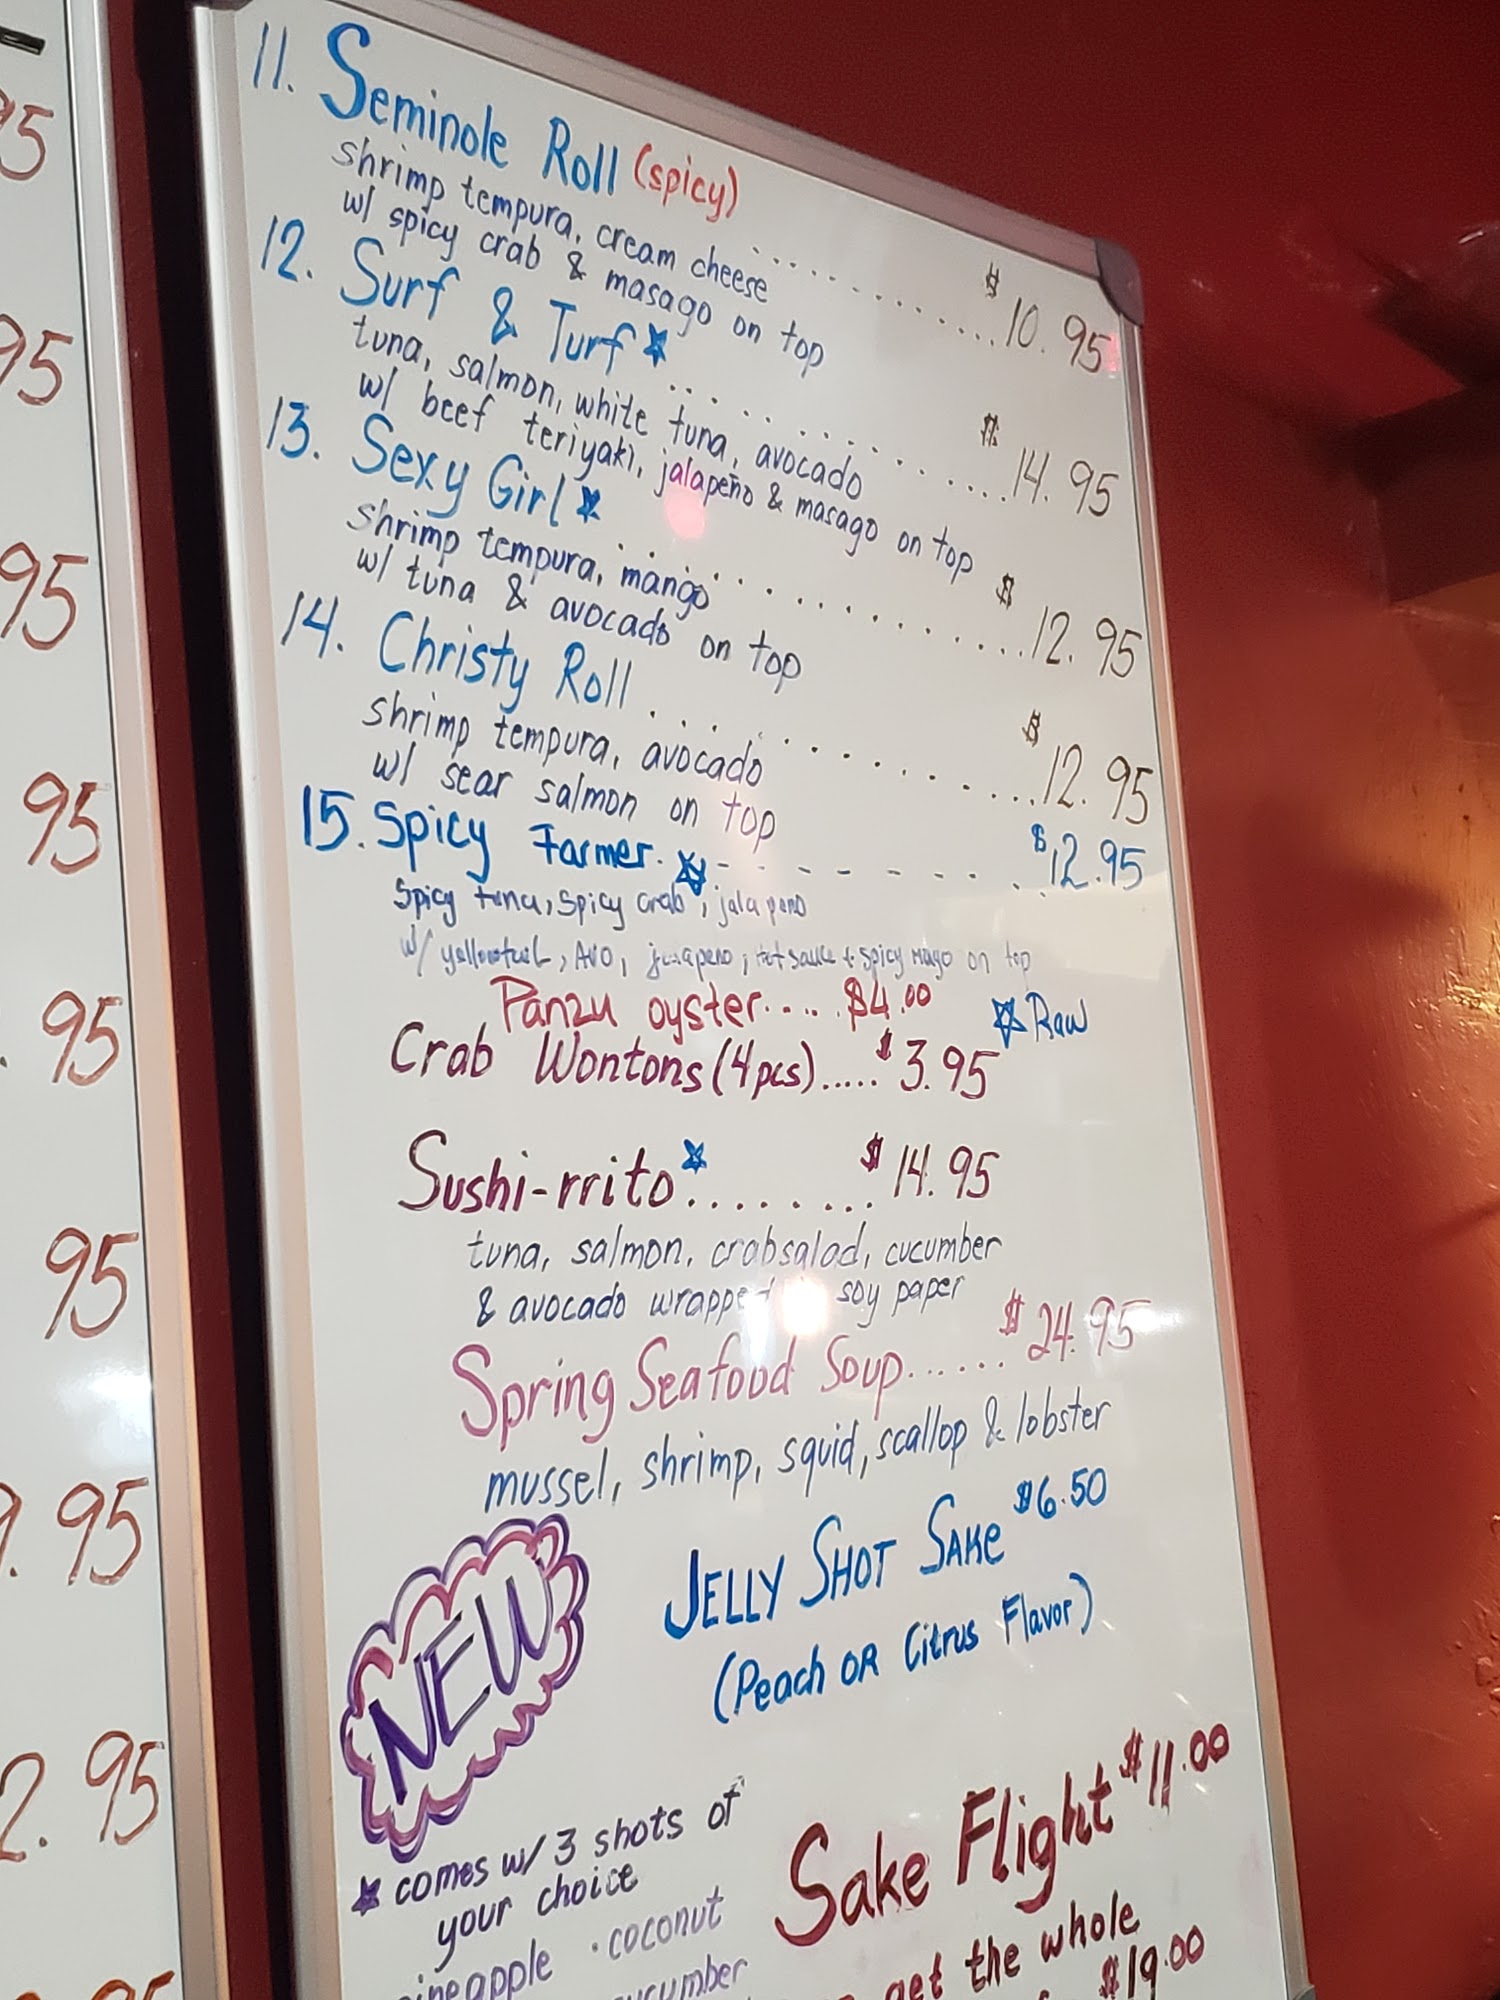 11. Seminole Roll (spicy) ............ $10.95
shrimp tempura, cream cheese
w/ spicy crab & masago on top
12. Surf & Turf ............ $14.95
tuna, salmon, white tuna, avocado
w/ beef teriyaki, jalapeño & masago on top
13. Sexy Girl ............ $12.95
shrimp tempura, mango
w/ tuna & avocado on top
14. Christy Roll ............ $12.95
shrimp tempura, avocado
w/ sear salmon on top
15. Spicy Farmer ------- $12.95
Spicy tuna, Spicy crab, jalapeno
w/ yellowtail, AVO, jalapeno, hot sauce & spicy mayo on top
Panzu oyster..... $4.00
☆ Raw
Crab Wontons (4pcs)..... $3.95
Sushi-rrito ........ $14.95
tuna, salmon, crabsalad, cucumber
& avocado wrapped soy paper
Spring Seafood Soup...... $24.95
mussel, shrimp, squid, scallop & lobster
NEW
JELLY SHOT SAKE $6.50
(Peach OR Citrus Flavor)
Sake Flight $11.00
★ comes w/ 3 shots of
your choice
· coconut
get the whole
$19.00
95
95
95
95
.95
95
9.95
2.95